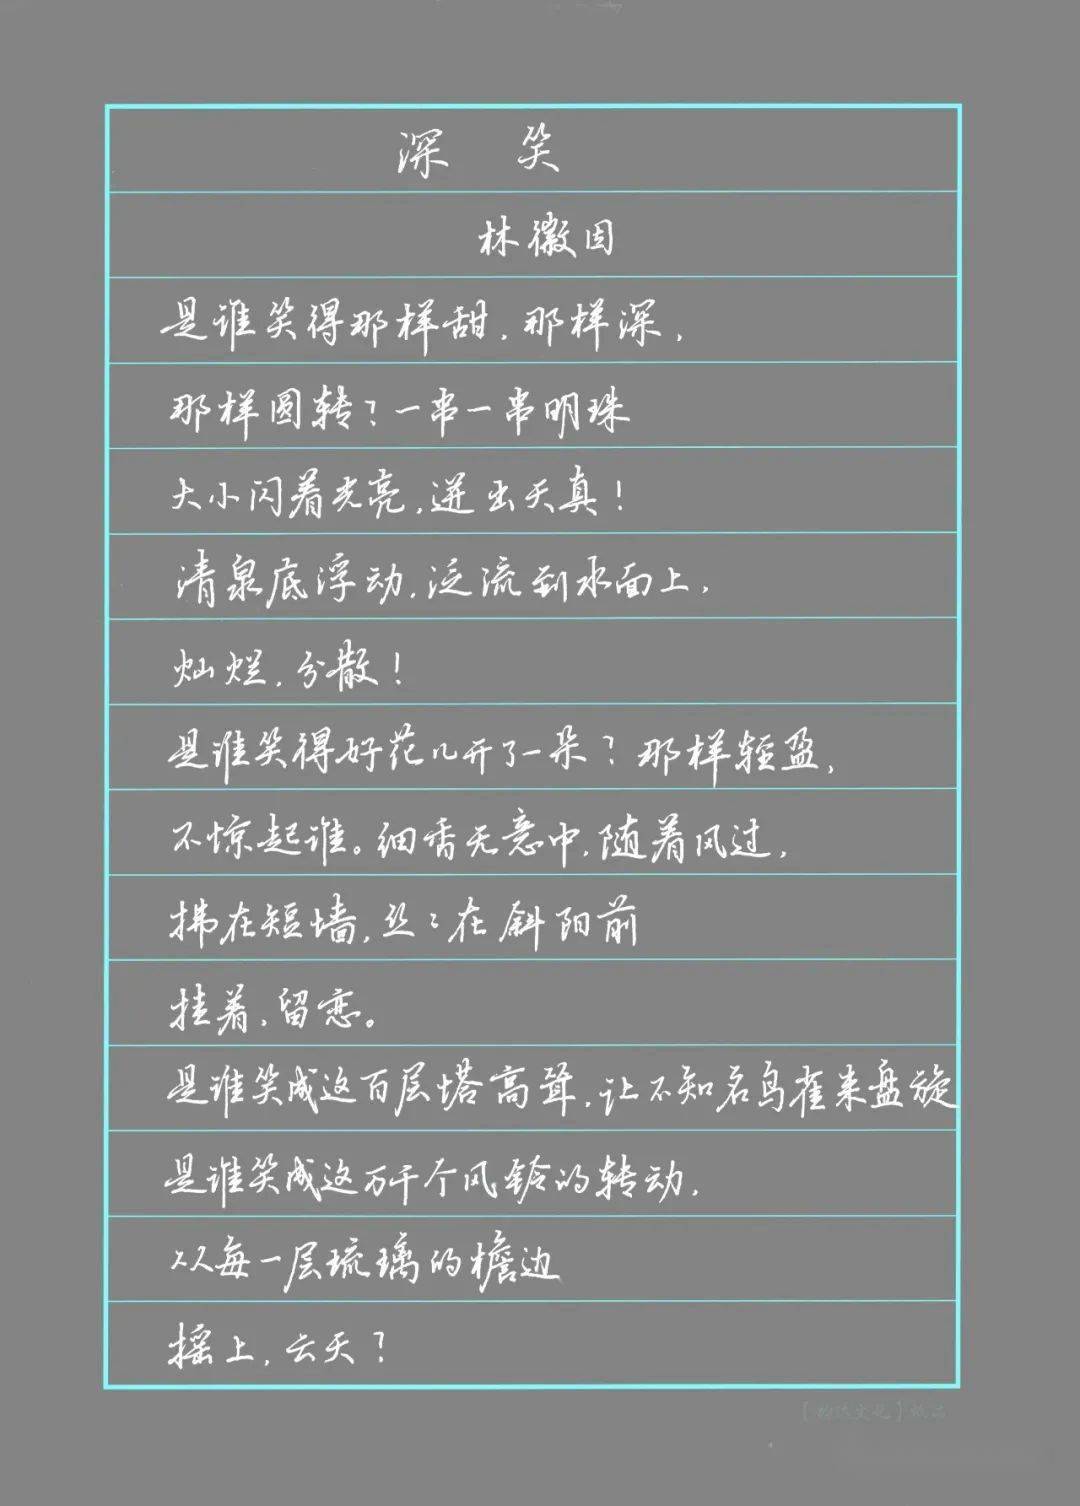 深 笑
林徽因
是谁笑得那样甜，那样深，
那样圆转？一串一串明珠
大小闪着光亮，迸出天真！
清泉底浮动，泛流到水面上，
灿烂，分散！
是谁笑得好花儿开了一朵？那样轻盈，
不惊起谁。细香无意中，随着风过，
拂在短墙，丝丝在斜阳前
挂着，留恋。
是谁笑成这百层塔高耸，让不知名鸟雀来盘旋
是谁笑成这万千个风铃的转动，
从每一层琉璃的檐边
摇上，云天？